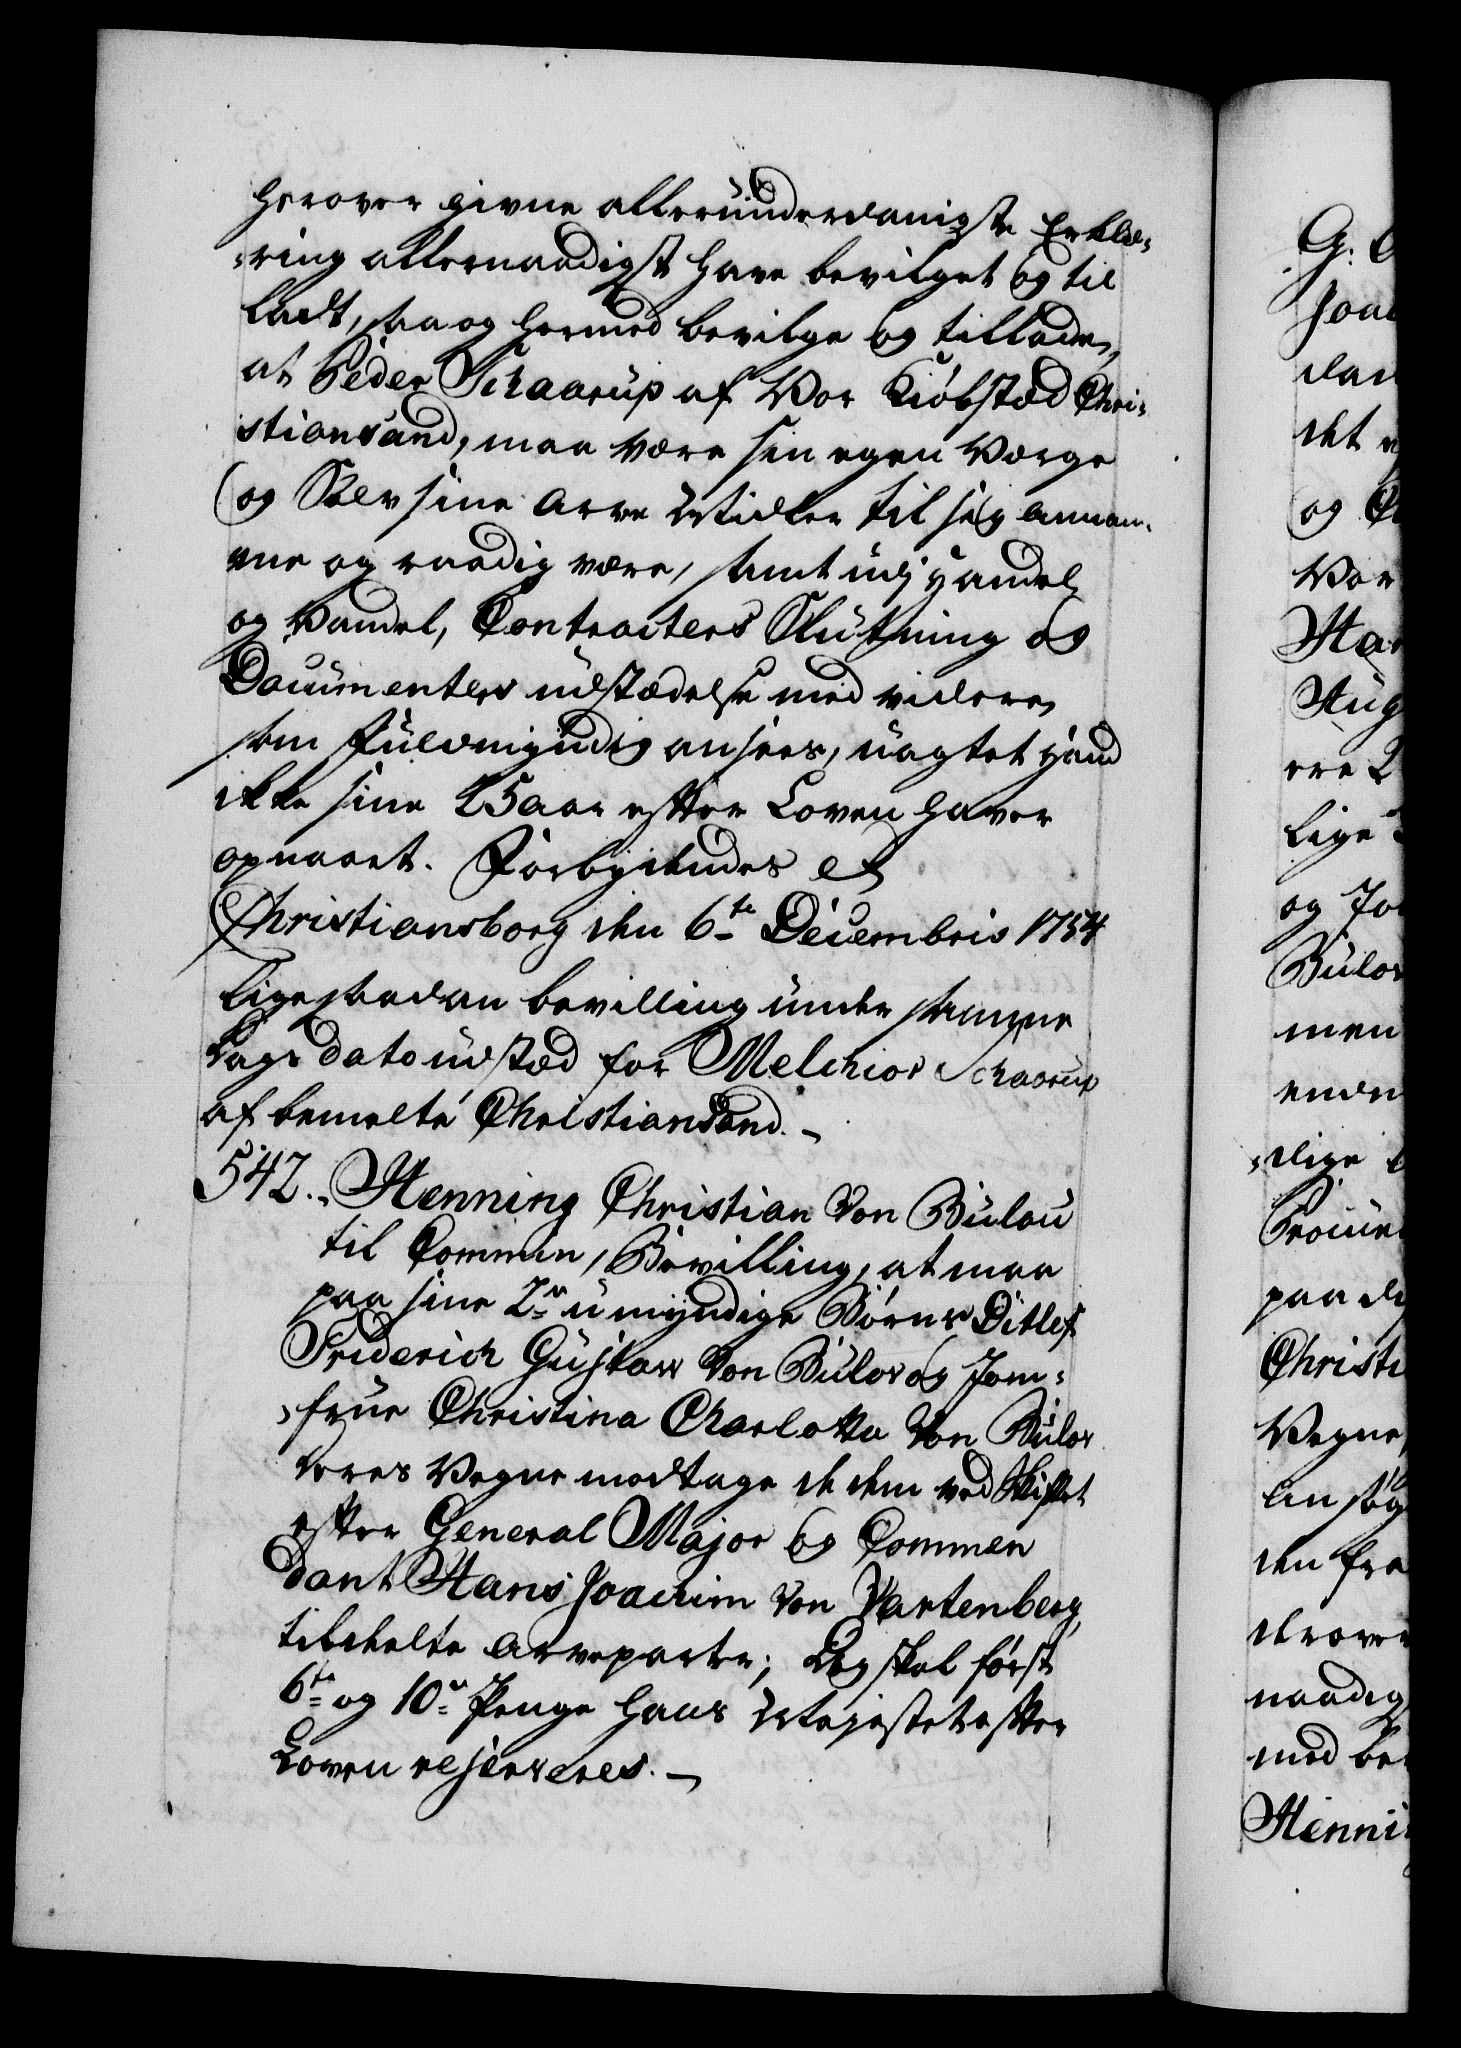 herover givne allerunderdanigste Erklæ-
-ring allernaadigst have bevilget og til
ladt, saa og hermed bevilge og tillade,
at Peder Schaarup af Vor Kiøbstæd Chri-
stiansand, maa være sin egen Værge
og Selv sine Arve Midler til sig annam-
me og raadig være, samt udj Handel
og Vandel, Contracters Slutning og
Documenters udstædelse med videre,
som Fuldmyndig ansees, uagtet hand
ikke sine 25 aar efter Loven haver
opnaaet. Forbydendes et
Christiansborg den 6te Decembris 1754
Lige saadan bevilling under samme
Dags dato udstæd for Melchior Schaarup
af bemelte Christiansand.
542. Henning Christian von Bulou
til Commin, Bevilling, at maa
paa sine 2de umyndige Børns Ditlef
Friderich Gustav von Bulov og Jom-
-frue Christina Charlotta von Bulov
deres Vegne modtage de dem ved Skiftet
efter General Major og Commen
dant Hans Joachim von Vartenberg,
tildeelte Arveparter; Dog skal først
6te og 10de Penge Hans Majestet efter
Loven rejserveres.
G.
Joac
det
og
Vor
lige
og Jo
Bulov
men
-dige
paa
Christi
Vegne
ansøg
den fra
derover
naadig
med be
Henni